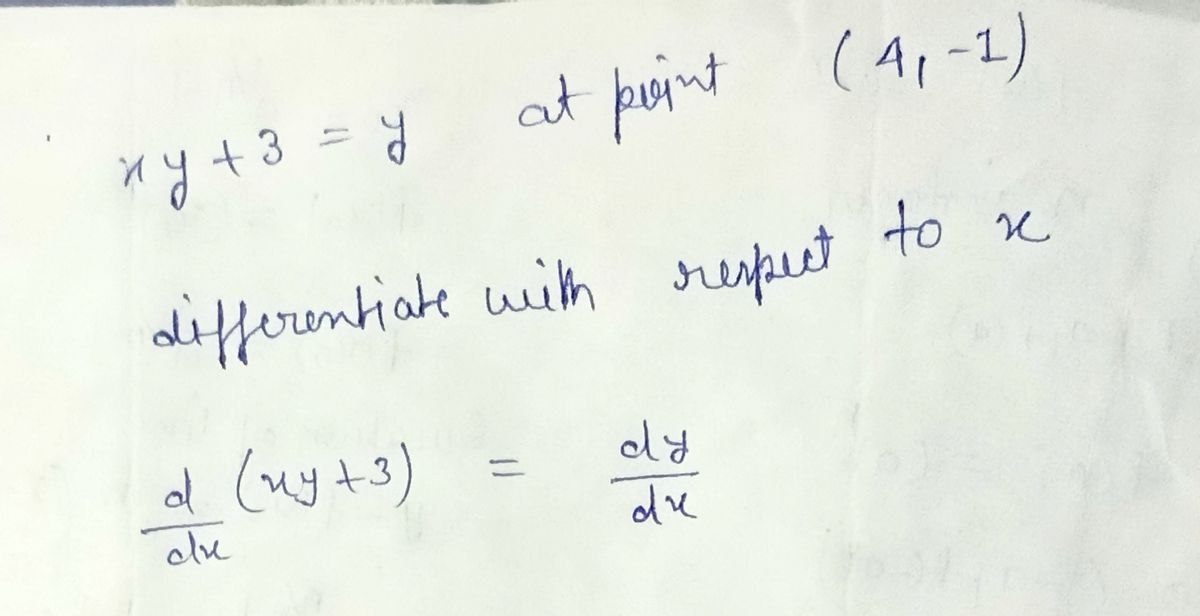 xy + 3 = y at point (4, -1)
differentiate with respect to x
d/dx (xy + 3) = dy/dx